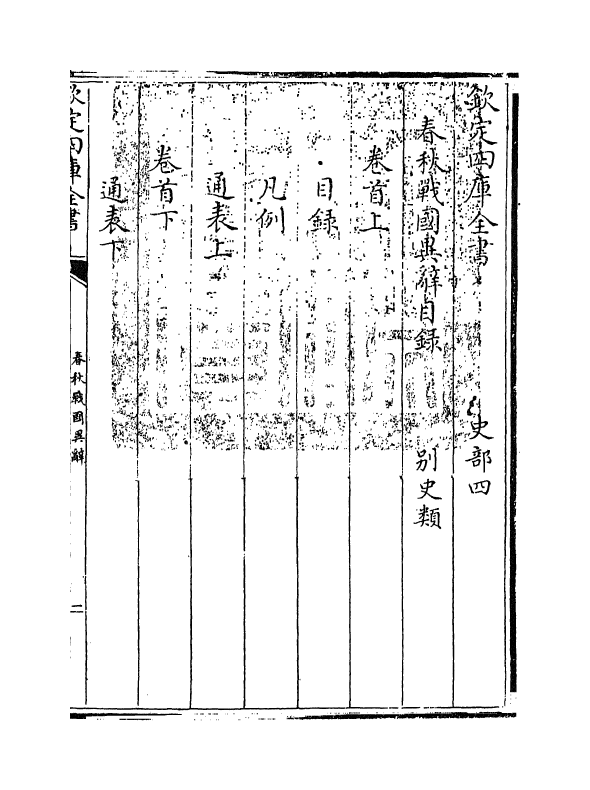 欽定四庫全書　史部四
春秋戰國異辭目録　别史類
卷首上
目録
凡例
通表上
卷首下
通表下
欽定四庫全書
春秋戰國異辭
二